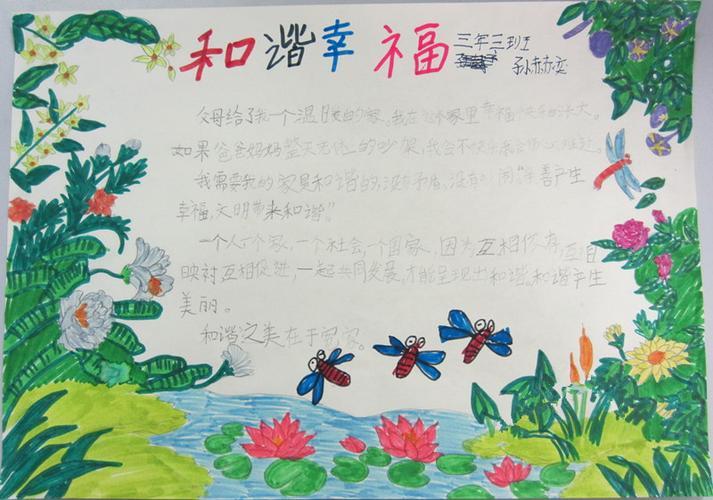 和谐幸福
三年三班
父母给了我一个温暖的家。我在这个家里幸福快乐的长大。
如果爸爸妈妈整天无休止的吵架,我会不快乐我会伤心难过。
我需要我的家是和谐的,没有矛盾,没有
产生
幸福,文明带来和谐。”
一个人,一个家,一个社会,一个国家,因为互相依存,互相
映衬互相促进,一起共同发展,才能呈现出和谐。和谐产生
美丽。
和谐之美在于